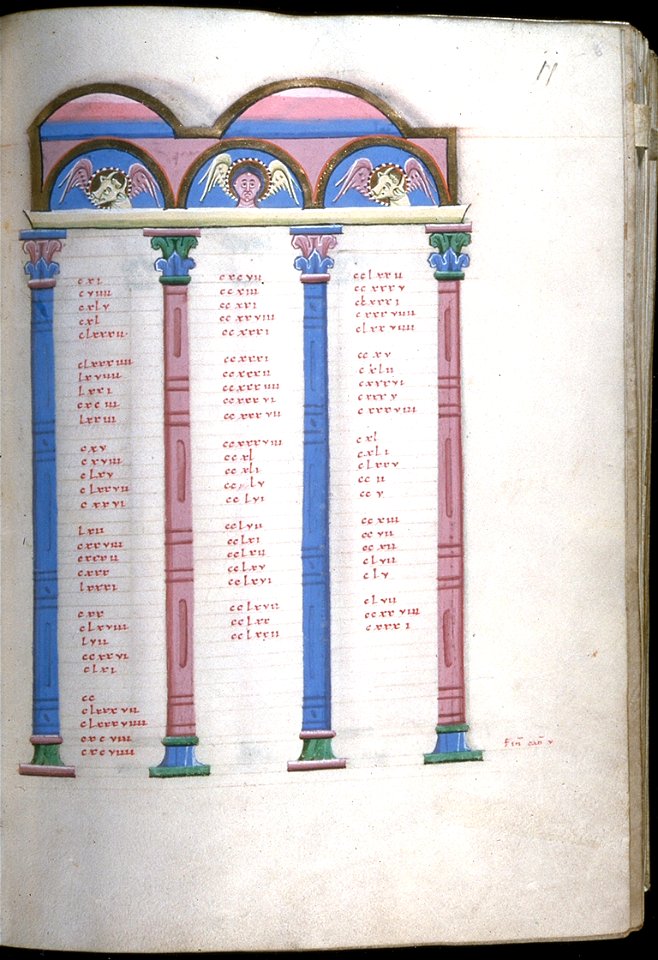 ii
cxi
cviiii
cxlv
cxl
clxxxii
clxxxiiii
lxviiii
lxxi
cxciii
lxxiii
cxv
cxviii
clxv
clxxvii
cxxvi
lxii
cxxviii
cxxxii
cxxx
lxxxi
cxx
clxviii
lvii
ccxxvi
clxi
cc
clxxxvii
clxxxviiii
cxcviii
cxcviiii
cxcvii
ccxiii
ccxxi
ccxxviii
ccxxxi
ccxxxi
ccxxxii
ccxxxiiii
ccxxxvi
ccxxxvii
ccxxxviii
ccxl
ccxli
cclv
cclvi
cclvii
cclxi
cclxii
cclxv
cclxvi
cclxvii
cclxx
cclxxii
cclxxii
ccxxxv
clxxxi
cxxxviiii
clxxviiii
ccxv
cxlii
cxxxvi
cxxxv
cxxxviii
cxl
cxli
clxxv
ccii
ccv
ccxiii
ccvii
ccxii
clvii
clv
clvii
ccxxviiii
cxxxi
fiñ cañ v